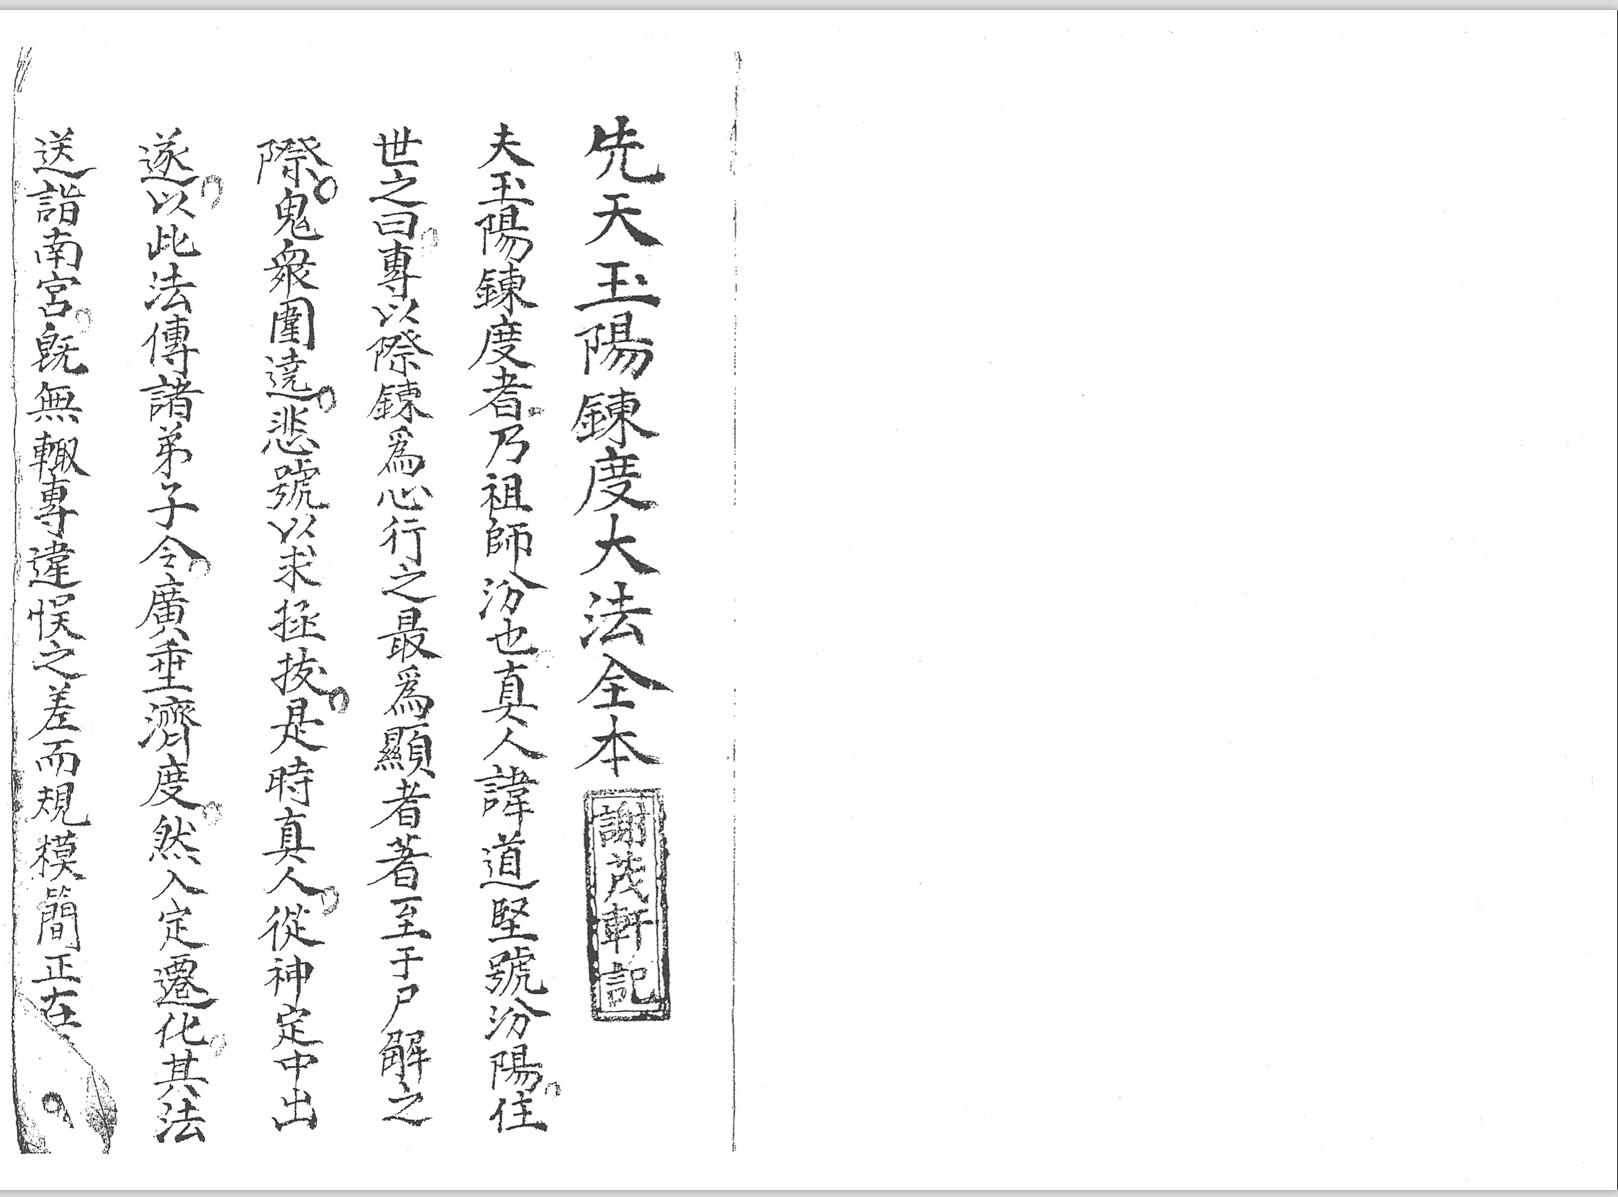 先天玉陽鍊度大法全本
謝茂軒記
夫玉陽鍊度者乃祖師汾也真人諱道堅號汾陽住
世之曰專以際鍊爲心行之最爲顯者著至于尸解之
際鬼衆圍遶悲號以求拯拔是時真人從神定中出
遂以此法傳諸弟子令廣垂濟度然入定遷化其法
送詣南宮旣無輙專違悮之差而規模簡正在